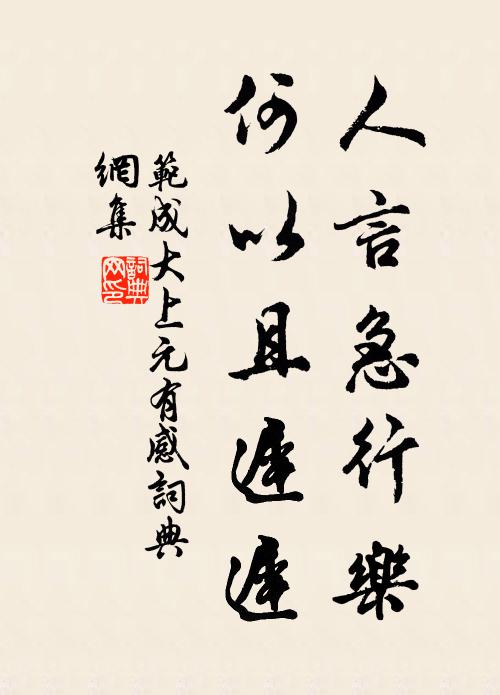 人言急行樂
何以且遲遲
範成大上元有感詞典
網集
詞典
網印